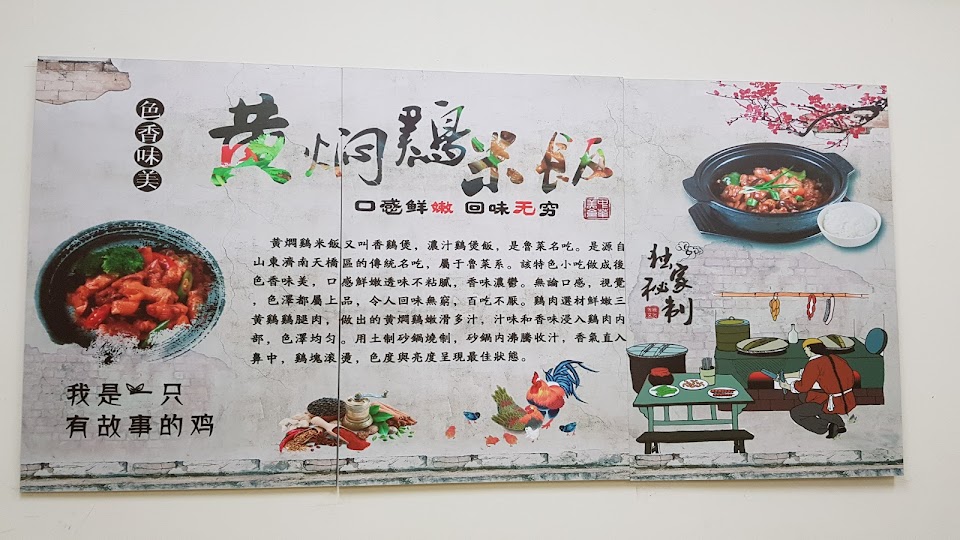 色香味美
黄焖鷄米飯
口感鲜嫩 回味无穷
黄燜鷄米飯又叫香鷄煲，濃汁鷄煲飯，是魯菜名吃。是源自
山東濟南天橋區的傳統名吃，屬于魯菜系。該特色小吃做成後
色香味美，口感鮮嫩透味不粘膩，香味濃鬱。無論口感，視覺
，色澤都屬上品，令人回味無窮，百吃不厭。鷄肉選材鮮嫩三
黃鷄鷄腿肉，做出的黄燜鷄嫩滑多汁，汁味和香味浸入鷄肉内
部，色澤均匀。用土制砂鍋燒制，砂鍋内沸騰收汁，香氣直入
鼻中，鷄塊滚燙，色度與亮度呈現最佳狀態。
我是一只
有故事的鸡
独家
秘制